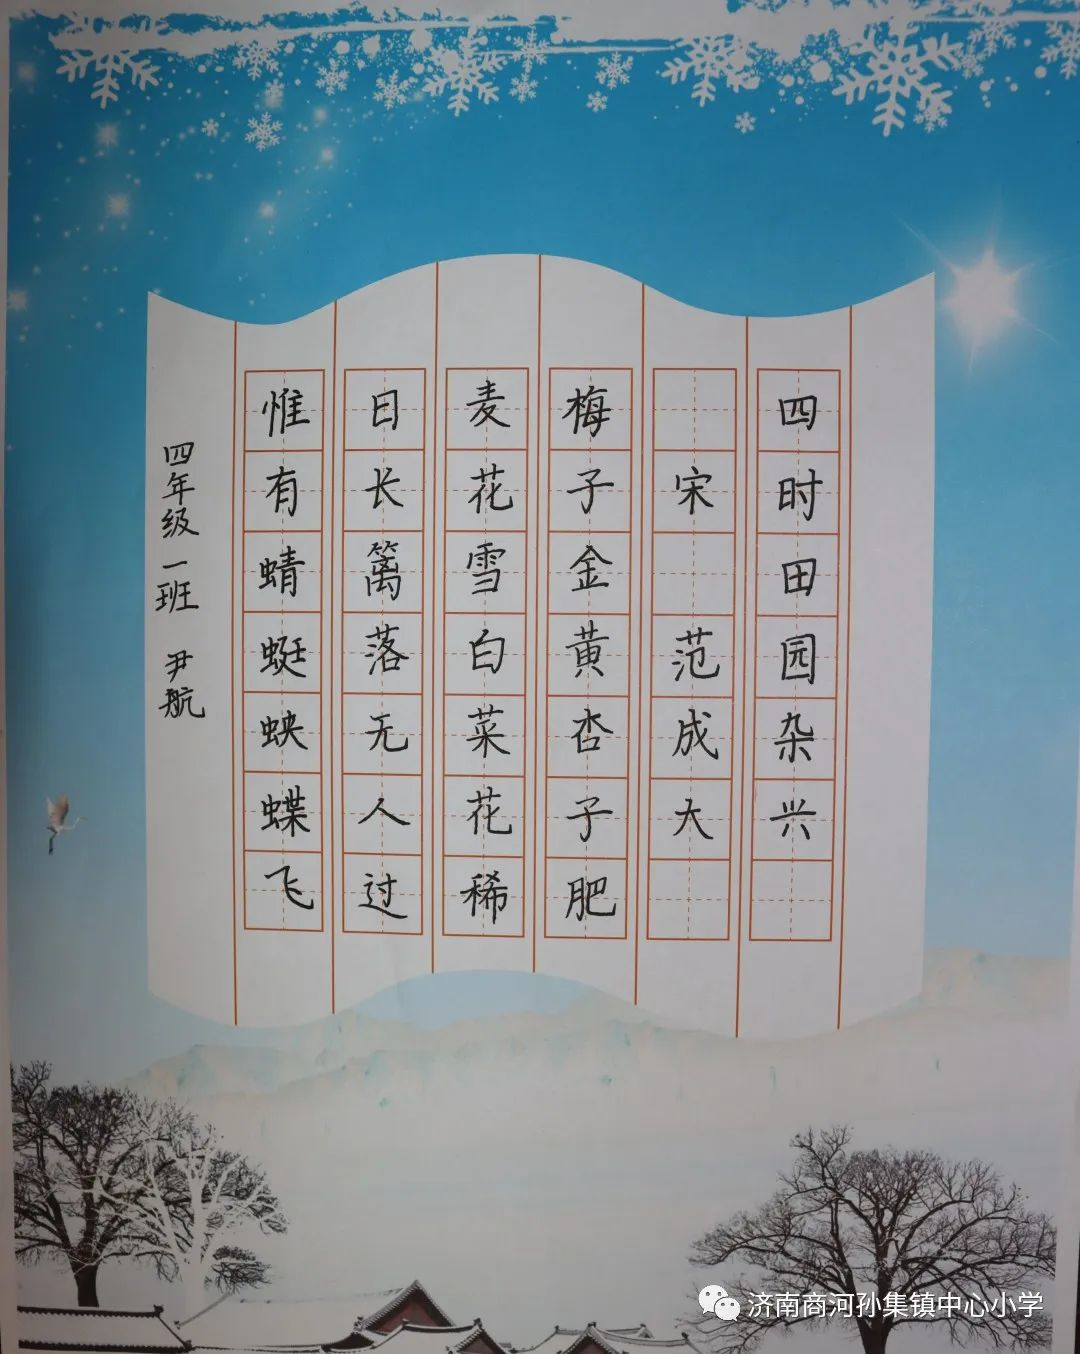 四时田园杂兴
宋 范成大
梅子金黄杏子肥
麦花雪白菜花稀
日长篱落无人过
惟有蜻蜓蛱蝶飞
四年级一班 尹航
济南商河孙集镇中心小学